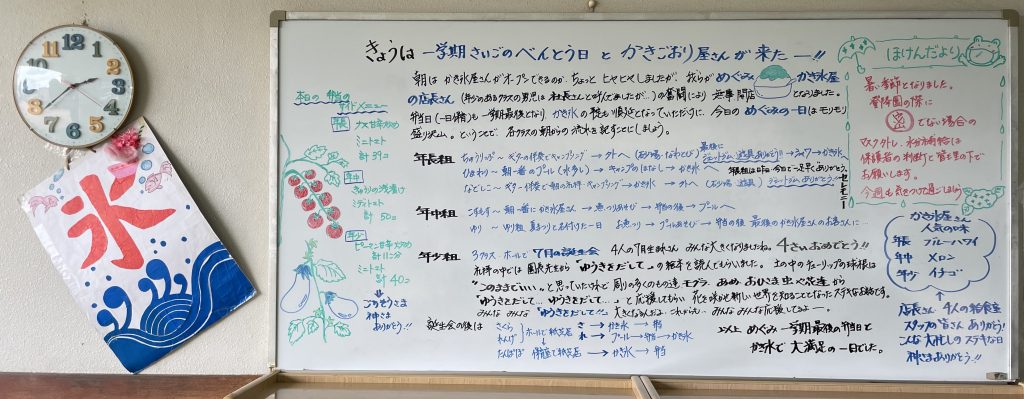 12
1
2
3
4
5
6
7
8
9
10
11
氷
きょうは 一学期さいごのべんとう日 と かきごおり屋さんが来たー!!
朝は かき氷屋さんがオープンできるのか、ちょっと ヒヤヒヤしましたが、我らが めぐみ かき氷屋
の店長さん (年少のあるクラスの男児は 社長さんと呼んでましたが…) の奮闘により 無事 開店 となりました。
弁当日(一日精)も 一学期最後となり、かき氷の提も満足となっていただろうに、今日の めぐみの一日は モリモリ
盛り沢山。ということで、各クラスの朝からの流れを記すことにしましょう。
本日の 弁当の
サイドメニュー
年長
ナス甘辛炒め
ミニトマト
計 39コ
年中
きゅうりの浅漬け
ミニトマト
計 50コ
年少
ピーマン甘辛炒め
ミニトマト
計 40コ
ごちそうさま
神さま
ありがとう!!
年長組
ちゅうりっぷ〜 ギターの伴奏でキャンプソング → 外へ (お山の場・なわとび) 最後に ジャットジム 遊具ありがとう!! → シャワー → かき氷へ
ひまわり〜 朝一番の プール(水多し) → キャンプのはなし → かき氷へ
なでしこ〜 ギター伴奏で朝のお祈り キャンプソング → かき氷 → 外へ
セレモニー
年中組
こすもす〜 朝一番に かき氷屋さん → 魚つりあそび → 弁当の後 → プールへ
ゆり 〜 ゆり組 夏まつりと名付けた一日 お魚つり → プールあそび → 弁当の後 最後のかき氷屋さんのお客さんに…
年少組
3クラス、ホールで 7月の誕生会 4人の7月生まれさん みんな大きくなりましたね。4さい おめでとう!!
お祈りの中では 園長先生から “ゆうきをだして” の絵本を読んでもらいました。土の中のチューリップの球根は
“このままでいい” と思っていたけれど 周りの多くのもの達 モグラ、あめ、おひさま 虫や花達から
“ゆうきだして… ゆうきだして…” と 応援してもらい 花を咲かせ新しい世界を知ることになったステキなお話です。
みんな みんな “ゆうきをだして!!” 大きくなるんだよ。これからも、みんな みんな応援してるよー。
誕生会の後は
さくら
れんげ
ホールで紙芝居
さ → かき氷 → 弁当
れ → プール → 弁当 → かき氷
たんぽぽ 保育室で紙芝居 → かき氷 → 弁当
以上 めぐみ 一学期最後の弁当日と
かき氷で 大満足の一日でした。
ほけんだより
暑い季節となりました。
登降園の際に
でない場合の
マスク外し、水分補給は
保護者の判断と管理の下で
お願いします。
今週も気をつけて過ごしましょう
かき氷屋さん
人気の味
年長 ブルーハワイ
年中 メロン
年少 イチゴ
店長さん 4人の給食室
スタッフの皆さん ありがとう!
こんな大忙しの ステキな日
神さまありがとう…!!